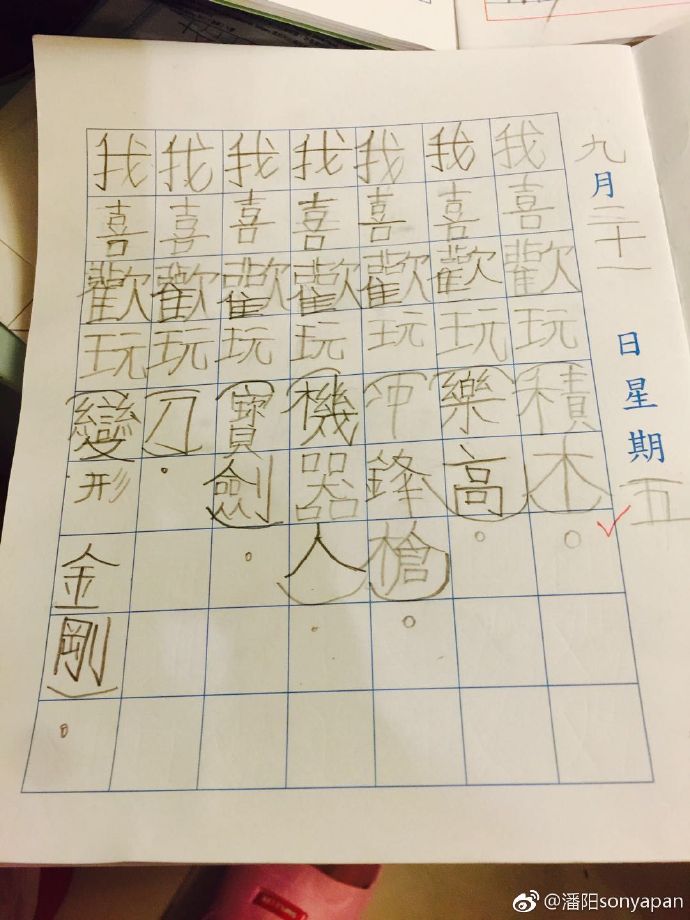 九月二十一日星期五
我喜歡玩(積木)。
我喜歡玩(樂高)。
我喜歡玩(冲鋒槍)。
我喜歡玩(機器人)。
我喜歡玩(寶劍)。
我喜歡玩(刀)。
我喜歡玩(變形金剛)。
@潘阳sonyapan